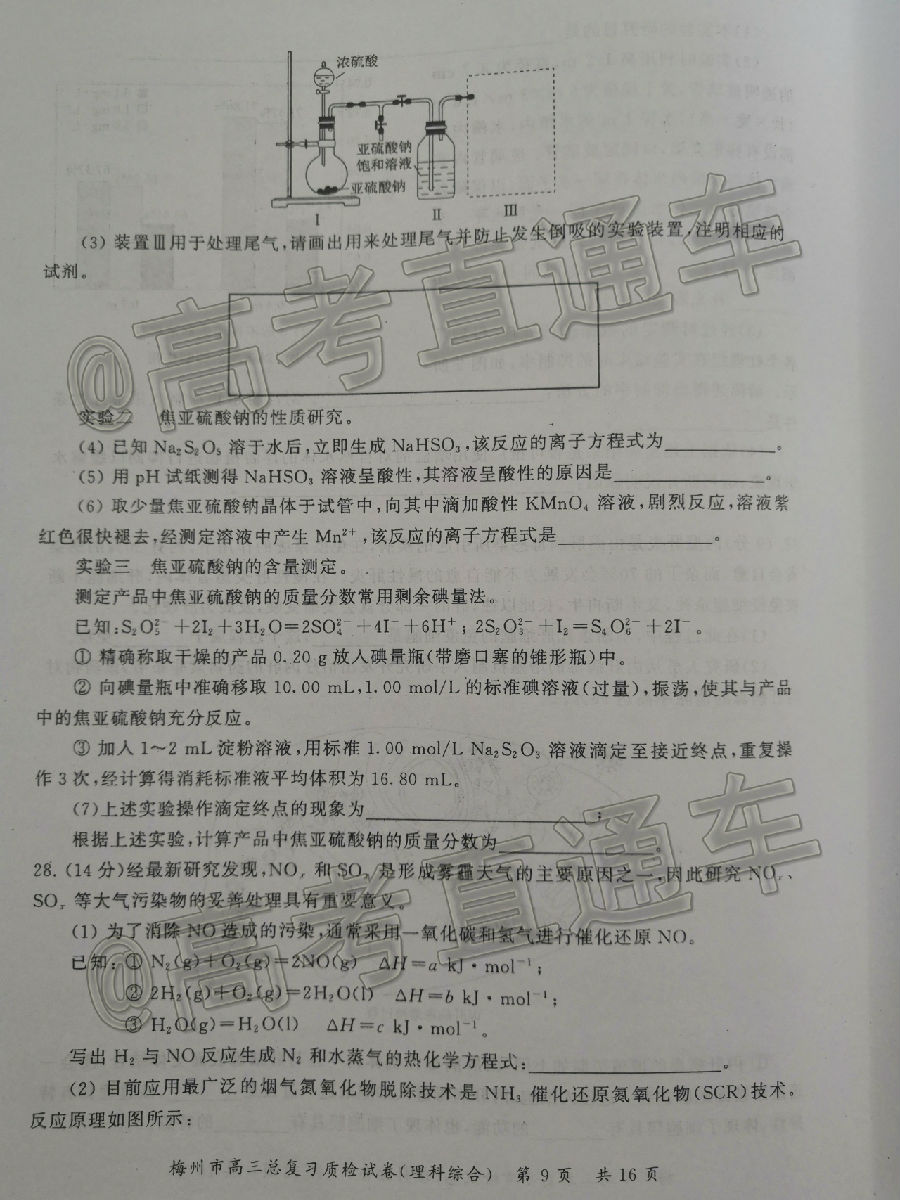 浓硫酸
亚硫酸钠
饱和溶液
亚硫酸钠
Ⅰ Ⅱ Ⅲ
(3) 装置Ⅲ用于处理尾气,请画出用来处理尾气并防止发生倒吸的实验装置,注明相应的
试剂。
@高考直通车
实验二 焦亚硫酸钠的性质研究。
(4) 已知 Na₂S₂O₅ 溶于水后,立即生成 NaHSO₃,该反应的离子方程式为____________。
(5) 用 pH 试纸测得 NaHSO₃ 溶液呈酸性,其溶液呈酸性的原因是____________。
(6) 取少量焦亚硫酸钠晶体于试管中,向其中滴加酸性 KMnO₄ 溶液,剧烈反应,溶液紫
红色很快褪去,经测定溶液中产生 Mn²⁺,该反应的离子方程式是____________。
实验三 焦亚硫酸钠的含量测定。
测定产品中焦亚硫酸钠的质量分数常用剩余碘量法。
已知:S₂O₅²⁻+2I₂+3H₂O=2SO₄²⁻+4I⁻+6H⁺;2S₂O₃²⁻+I₂=S₄O₆²⁻+2I⁻。
① 精确称取干燥的产品 0.20 g 放入碘量瓶(带磨口塞的锥形瓶)中。
② 向碘量瓶中准确移取 10.00 mL,1.00 mol/L 的标准碘溶液(过量),振荡,使其与产品
中的焦亚硫酸钠充分反应。
③ 加入 1~2 mL 淀粉溶液,用标准 1.00 mol/L Na₂S₂O₃ 溶液滴定至接近终点,重复操
作 3 次,经计算得消耗标准液平均体积为 16.80 mL。
(7)上述实验操作滴定终点的现象为____________;
根据上述实验,计算产品中焦亚硫酸钠的质量分数为____________。
28. (14 分)经最新研究发现,NOₓ 和 SOₓ 是形成雾霾天气的主要原因之一,因此研究 NOₓ、
SOₓ 等大气污染物的妥善处理具有重要意义。
@高考直通车
(1) 为了消除 NO 造成的污染,通常采用一氧化碳和氢气进行催化还原 NO。
已知:① N₂(g)+O₂(g)=2NO(g) ΔH=a kJ·mol⁻¹;
② 2H₂(g)+O₂(g)=2H₂O(l) ΔH=b kJ·mol⁻¹;
③ H₂O(g)=H₂O(l) ΔH=c kJ·mol⁻¹。
写出 H₂ 与 NO 反应生成 N₂ 和水蒸气的热化学方程式:____________。
(2) 目前应用最广泛的烟气氮氧化物脱除技术是 NH₃ 催化还原氮氧化物(SCR)技术。
反应原理如图所示:
梅州市高三总复习质检试卷(理科综合) 第 9 页 共 16 页